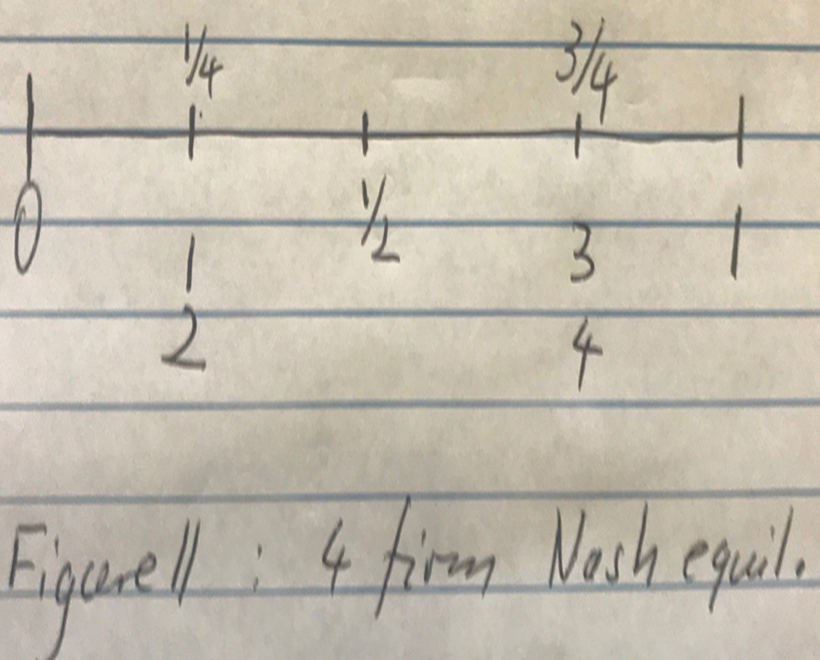 1/4 3/4
0 1/2 1
1 3
2 4
Figure 11 : 4 firm Nash equil.